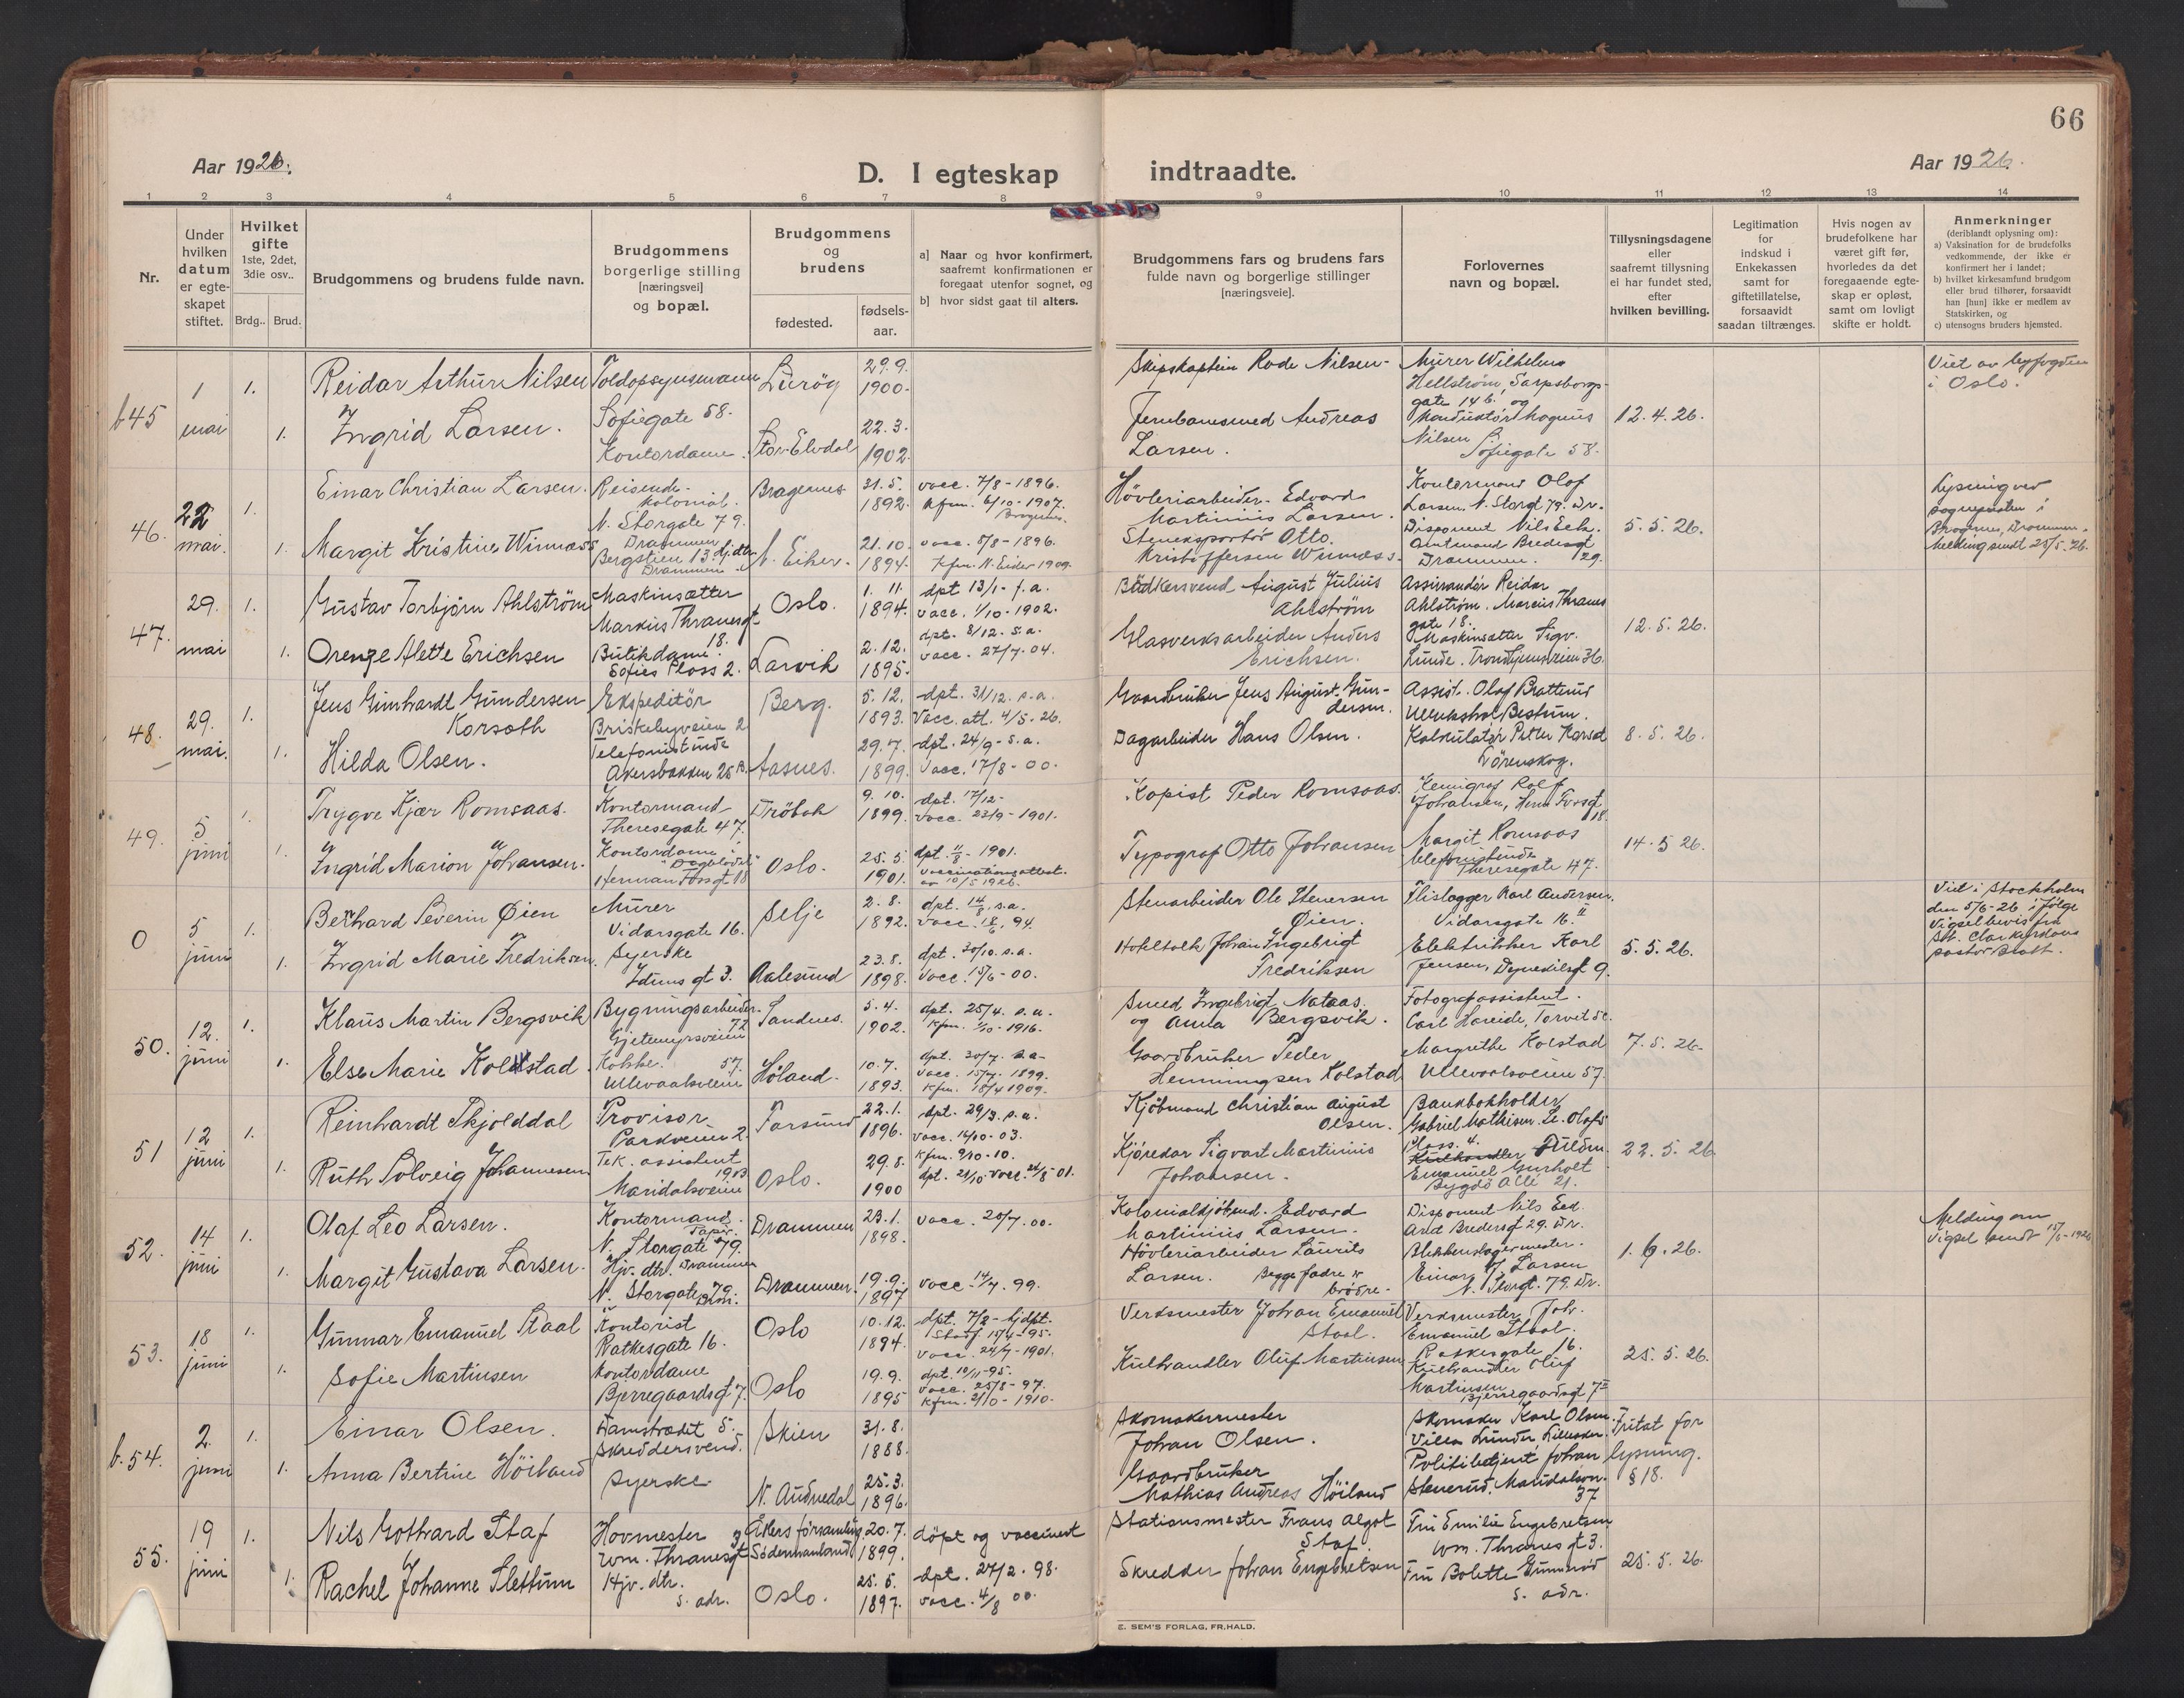 66
Aar 1926.
D. I egteskap
indtraadte.
Aar 1926.
1 2 3 4 5 6 7 8 9 10 11 12 13 14
Nr.
Under
hvilken
datum
er egte-
skapet
stiftet.
Hvilket
gifte
1ste, 2det,
3die osv..
Brdg.. Brud.
Brudgommens og brudens fulde navn.
Brudgommens
borgerlige stilling
[næringsvei]
og bopæl.
Brudgommens
og
brudens
fødested.
fødsels-
aar.
a) Naar og hvor konfirmert,
saafremt konfirmationen er
foregaat utenfor sognet, og
b) hvor sidst gaat til alters.
Brudgommens fars og brudens fars
fulde navn og borgerlige stillinger
[næringsveie].
Forlovernes
navn og bopæl.
Tillysningsdagene
eller
saafremt tillysning
ei har fundet sted,
efter
hvilken bevilling.
Legitimation
for
indskud i
Enkekassen
samt for
giftetillatelse,
forsaavidt
saadan tiltrænges.
Hvis nogen av
brudefolkene har
været gift før,
hvorledes da det
foregaaende egte-
skap er opløst,
samt om lovligt
skifte er holdt.
Anmerkninger
(deriblandt oplysning om):
a) Vaksination for de brudefolks
vedkommende, der ikke er
konfirmert her i landet;
b) hvilket kirkesamfund brudgom
eller brud tilhører, forsaavidt
han [hun] ikke er medlem av
Statskirken, og
c) utensogns bruders hjemsted.
b45
1
mai
1.
1.
Reidar Arthur Nilsen
Ingrid Larsen.
Toldopsynsmann
Sofiegate 58.
Kontordame.
Luröy
Stor-Elvdal
29.9.
1900.
22.3.
1902.
Skipskaptein Rode Nilsen
Jernbanesmed Andreas
Larsen.
Murer Wilhelm
Hellström, Sarpsborg-
gate 14b. og
Konduktör Magnus
Nilsen
Sofiegate 58.
12.4.26.
Viet av byfogden
i Oslo.
46.
22
mai.
1.
1.
Einar Christian Larsen.
Margit Kristine Winnæss
Reisende
kolonial.
N. Storgate 79.
Drammen
Bergstien 13. Hj.dtr.
Drammen
Bragernes
N. Eiker.
31.5.
1892.
21.10.
1894.
vacc. 7/8-1896.
Kfm. 6/10-1907.
Bragernes.
vacc. 5/8-1896.
Kfm. N. Eiker 1909.
Hövleriarbeider Edvard
Martinius Larsen.
Steneksportör Otto
Kristoffersen Winnæss.
Kontormand Olaf
Larsen, N. Storgt 79. Dr.
Disponent Nils Eek.
Amtmand Bredesgt
Drammen. 29.
5.5.26.
Lysning ved
sognepresten i
Bragernes, Drammen.
Melding sendt 25/5.26.
47.
29.
mai
1.
1.
Gustav Torbjörn Ahlström
Orenze Alette Erichsen
Maskinsætter
Markus Thranesgt
18.
Butikdame.
Sofies Plass 2.
Oslo.
Larvik
1.11.
1894.
2.12.
1895.
dpt 13/1- f.a.
vacc. 1/10-1902.
dpt. 8/12. s.a.
vacc. 27/7.04.
Bödkersvend August Julius
Ahlström
Glasverksarbeider Anders
Erichsen.
Assurandör Reidar
Ahlström, Marcus Thranes
gate 18.
Maskinsætter Sigv.
Lunde. Trondhjemsveien 36.
12.5.26.
48.
29.
mai.
1.
1.
Jens Gunhardt Gundersen
Korsoth
Hilda Olsen.
Ekspeditör
Briskebyveien 2
Telefonistinde
Akersbakken 25 B.
Berg.
Aasnes.
5.12.
1893.
29.7.
1899.
dpt. 31/12. s.a.
Vacc. att. 4/5-26.
dpt. 24/9-s.a.
Vacc. 17/8-00.
Gaardbruker Jens August Gun-
dersen.
Dagarbeider Hans Olsen.
Assist. Olaf Bratterud
Ullernshol Bestum.
Kalkulatör Petter Korsæt
Lörenskog.
8.5.26.
49.
5
juni
1.
1.
Trygve Kjær Romsaas.
Ingrid Marion Johansen.
Kontormand
Theresegate 47.
Kontordame i
"Dagbladet"
Herman Fossgt 18
Dröbak
Oslo.
9.10.
1899.
25.5.
1901.
dpt. 17/12-
vacc. 23/9-1901.
dpt. 11/8-1901.
Vaccinationsattest
av 10/5 1926.
Kopist Peder Romsaas.
Typograf Otto Johansen
Kemigraf Rolf
Johansen, Herm Fossgt
18.
Margit Romsaas
telefonistinde
Theresegate 47.
14.5 26.
0
5
juni
1.
1.
Bernhard Severin Øien
Ingrid Marie Fredriksen.
Murer
Vidarsgate 16.
Syerske
Iduns gt 3.
Selje
Aalesund
2.8.
1892.
23.8.
1898.
dpt. 14/8. s.a.
vacc. 18/6.94.
dpt. 30/10. s.a.
Vacc. 15/6-00.
Stenarbeider Ole Stenersen
Øien.
Johan Ingebrigt
Fredriksen
Flislægger Karl Andersen,
Vidarsgate 16.II
Elektriker Karl
Jensen, Dynekilsgt 9.
5.5.26.
Viet i Stockholm
den 5/6-26 ifölge
Vigselbevis fra
50.
12.
juni
1.
1.
Klaus Martin Bergsvik
Else Marie Kolstad
Bygningsarbeider
72
Gjetemyrsveien
Kokke. 57.
Ullevaalsveien
Sandnes.
Höland.
5.4.
1902.
10.7.
1893.
dpt. 25/4. s.a.
Kfm. 1/10-1916.
dpt. 30/7. s.a-
Vacc. 15/7.1899.
Kfm. 18/4 1909.
Smed Ingebrigt Nataas.
og Anna Bergsvik.
Gaardbruker Peder
Henningsen Kolstad
Fotografassistent.
Carl Hareide, Torvet 5c.
Margrethe Kolstad
Ullevaalsveien 57.
7.5.26.
51
12
juni
1.
1.
Reinhardt Skjolddal
Ruth Solveig Johannesen
Provisor
Parkveien 2.
Tek. assistent
19 B
Maridalsveien
Farsund
Oslo.
22.1.
1896.
29.8.
1900
dpt. 29/3. s.a.
vacc. 16/10-03.
Kfm. 9/10-10.
dpt. 21/10. vacc. 24/8-01.
Kjöbmand Christian August
Olsen.
Kjöredar Sigvart Martinius
Johansen.
Bankbokholder
Gabriel Mathisen, St. Olafs
Plass. 4.
Emanuel Gursholt
Bygdö Allé 21.
22.5.26
52.
14
juni
1.
1.
Olaf Leo Larsen.
Margit Gustava Larsen.
Kontormand.
Papir.
N. Storgate 79.
Hjv. dtr. Drammen
N. Storgate 79
Drm.
Drammen
Drammen.
23.1.
1898.
19.9.
1897
vacc. 20/7.00.
vacc. 14/7.99.
Kolonialkjöbmd. Edvard
Martinius Larsen.
Hövleriarbeider Laurits
Larsen. Begge fædre er
brödre.
Disponent Nils Eek.
Amt Bredesgt 29. Dr.
Blikkenslagermester.
Einar Larsen
N. Storgt. 79. Dr.
1.6.26.
Melding om
Vigsel sendt 15/6-1926
53.
18
juni
1.
1.
Gunnar Emanuel Staal
Sofie Martinsen
Kontorist
Rathkesgate 16.
Kontordame
Bjerregaardsgt 7.
Oslo
Oslo
10.12.
1894.
19.9.
1895
dpt. 7/2- hjdpt.
Stadf 15/4-95.
vacc. 24/9-1901.
dpt. 10/11-95.
vacc. 25/8-97.
Kfm. 2/10-1910.
Verksmester Johan Emanuel
Staal.
Kulhandler Oluf Martinsen
Verksmester Joh.
Emanuel Staal.
Ratkesgate 16.
Kulhandler Oluf
Martinsen
Bjerregaardsgt 7II
25.5.26.
b.54.
2.
juni
1.
1.
Einar Olsen.
Anna Bertine Höiland
Damstrædet 5.
Skreddersvend.
Syerske
Skien
N. Audnedal
31.8.
1888.
25.3.
1896.
Skomakermester
Johan Olsen.
Gaardbruker
Mathias Andreas Höiland
Skomaker Karl Olsen.
Villa Lunder, Lilleaker.
Politibetjent Johan
Stenerud. Maridalsvn.
37
Fritat for
lysning.
§ 18.
55.
19
juni
1.
1.
Nils Gothard Staf
Rachel Johanne Slettum
Hovmester 3
Wm. Thranesgt
Hjv. dtr.
s. adr.
Eklers församling
Södermanland
Oslo.
20.7.
1899.
25.5.
1897.
döpt og vaccinert
dpt. 27/2.98.
vacc. 4/8 00.
Stationsmester Frans Algot
Staf.
Skredder Johan Engebretsen
Fru Emilie Engebretsen
Wm. Thranes gt 3.
Fru Bolette
s. adr.
25.5.26.
E. SEM'S FORLAG, FR.HALD.